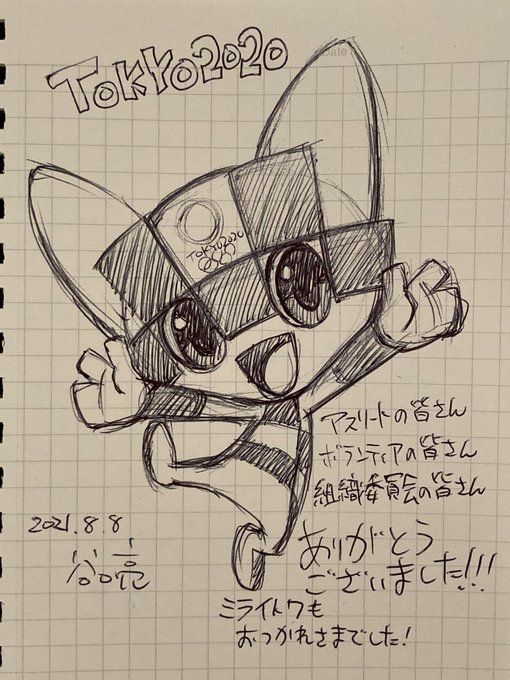 Date
TOKYO2020
TOKYO2020
アスリートの皆さん
ボランティアの皆さん
組織委員会の皆さん
ありがとう
ございました!!!
2021.8.8
谷口亮
ミライトワも
おつかれさまでした!